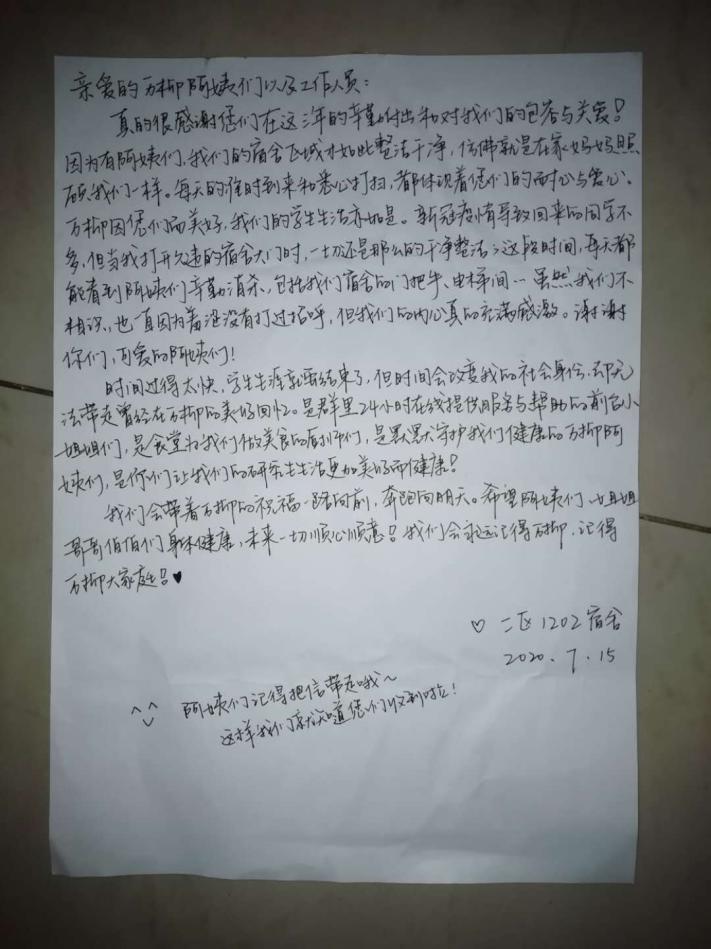 亲爱的万柳阿姨们以及工作人员：
真的很感谢您们在这三年的辛勤付出和对我们的包容与关爱！
因为有阿姨们，我们的宿舍区域才如此整洁干净，仿佛就是在家妈妈照
顾我们一样。每天的准时到来和悉心打扫，都体现着您们的耐心与爱心。
万柳因您们而美好，我们的学生生活亦如是。新冠疫情导致回来的同学不
多，但当我打开久违的宿舍大门时，一切还是那么的干净整洁；这段时间，每天都
能看到阿姨们辛勤消杀，包括我们宿舍的门把手、电梯间…虽然我们不
相识，也一直因为羞涩没有打过招呼，但我们的内心真的充满感激。谢谢
你们，可爱的阿姨们！
时间过得太快，学生生涯就要结束了，但时间会改变我的社会身份，却无
法带走曾经在万柳的美好回忆。是群里24小时在线提供服务与帮助的前台小
姐姐们，是食堂为我们做美食的厨师们，是默默守护我们健康的万柳阿
姨们，是你们让我们的研究生生活更加美好而健康！
我们会带着万柳的祝福一路向前，奔跑向明天。希望阿姨们、姐姐
哥哥伯伯们身体健康，未来一切顺心顺意！我们会永远记得万柳，记得
万柳大家庭！♥
♡ 二区1202宿舍
2020.7.15
阿姨们记得把信带走哦～
这样我们就知道您们收到啦！